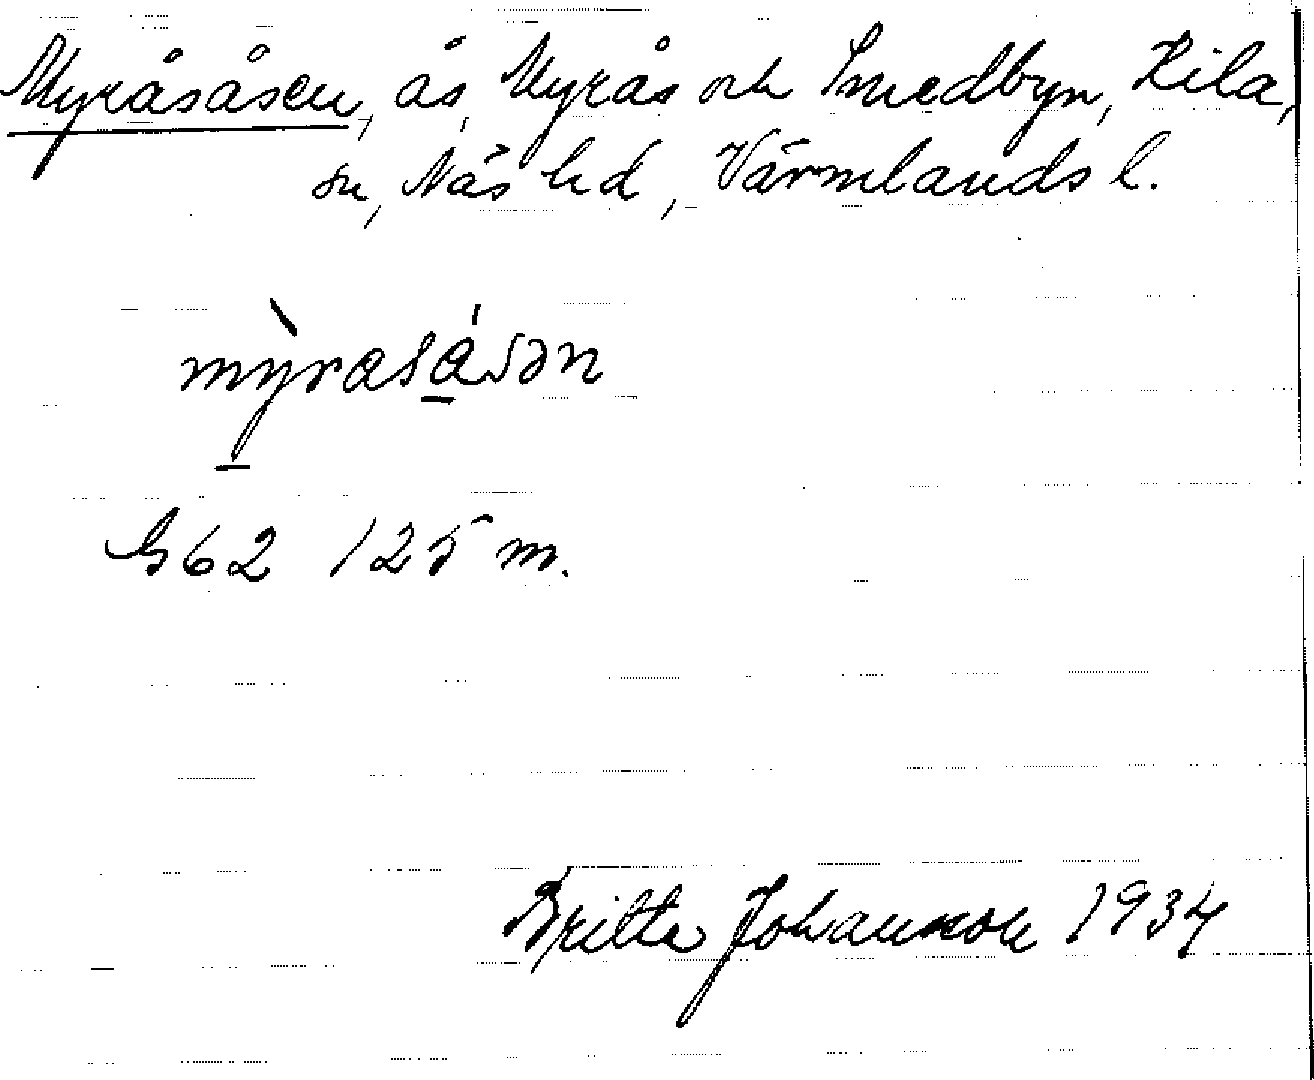 Myråsåsen, ås, Myrås och Smedbyn, Kila,
sn, Näs hd, Värmlands l.
mỳrasásən
G62 125 m.
Britta Johansson 1934